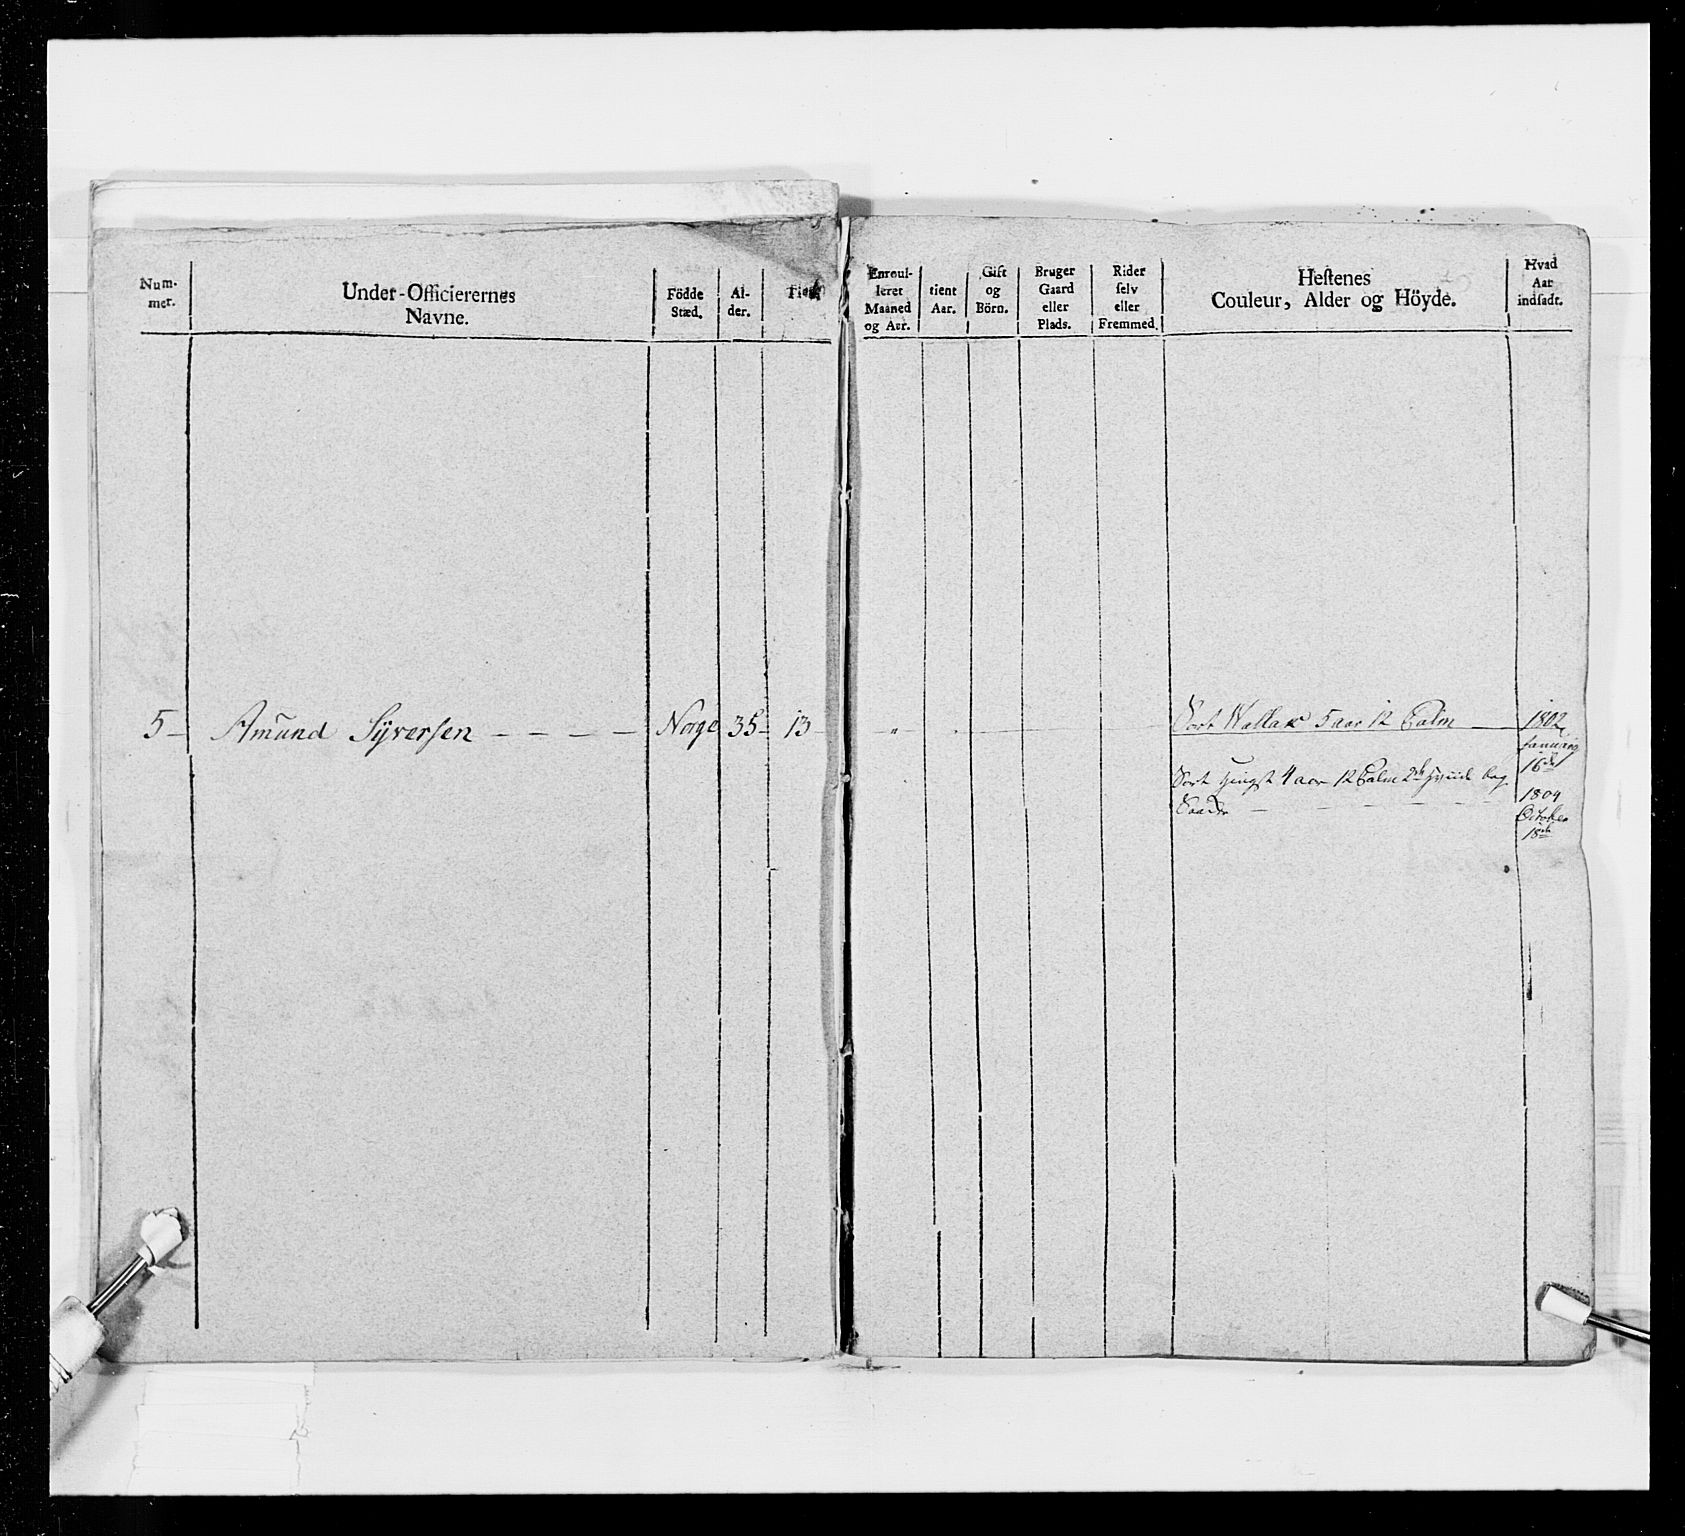 Num-
mer.
Under-Officierernes
Navne.
Födde
Stæd.
Al-
der.
Enroul-
leret
Maaned
og Aar.
tient
Aar.
Gift
og
Börn.
Bruger
Gaard
eller
Plads.
Rider
selv
eller
Fremmed.
Hestenes
Couleur, Alder og Höyde.
Hvad
Aar
indsadt.
5 Amund Syversen Norge 35 13 " Sort Wallak 5 aar 12 Palm 1802
Januarij
16de
Sort Hingst 4 aar 12 Palm 2de hviid bag
1804
October
18de